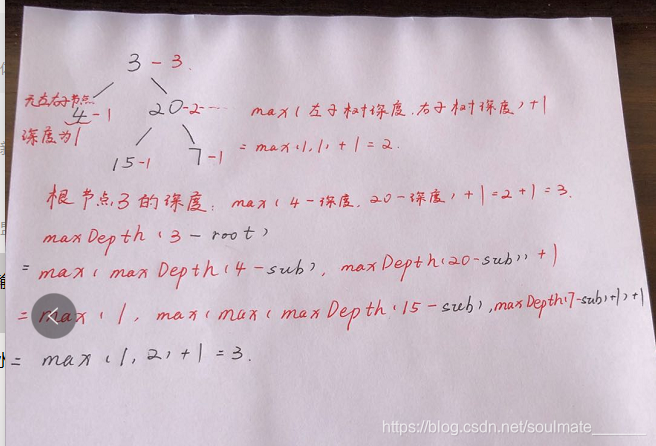 3 - 3
无左右子节点
4 - 1
20 - 2 - - - -
max(左子树深度, 右子树深度) + 1
深度为1
15 - 1
7 - 1
= max(1, 1) + 1 = 2.
根节点3的深度: max(4-深度, 20-深度) + 1 = 2 + 1 = 3.
maxDepth(3 - root)
= max(maxDepth(4 - sub), maxDepth(20 - sub)) + 1
= max(1, max(max(maxDepth(15 - sub), maxDepth(7 - sub) + 1) + 1
= max(1, 2) + 1 = 3.
https://blog.csdn.net/soulmate______